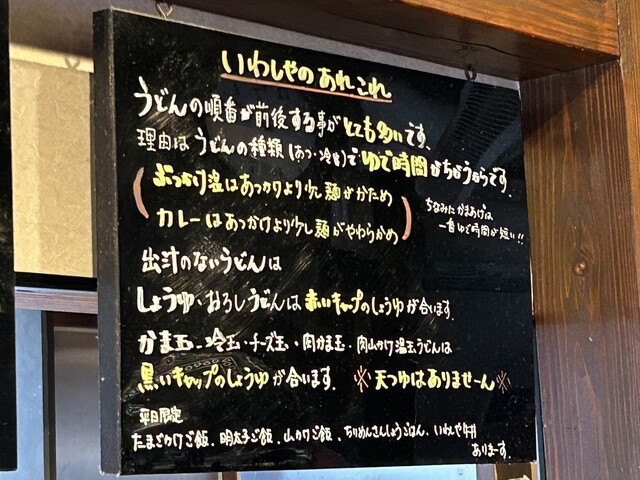 いわしやのあれこれ
うどんの順番が前後する事がとても多いです。
理由はうどんの種類(あつ・冷など)でゆで時間がちがうからです。
ぶっかけ温はあっかけより少し麺がかため
カレーはあっかけより少し麺がやわらかめ
ちなみにかまあげは
一番ゆで時間が短い!!
出汁のないうどんは
しょうゆ・おろしうどんは赤いキャップのしょうゆが合います。
かま玉・冷玉・チーズ玉・肉かま玉・肉山かけ温玉うどんは
黒いキャップのしょうゆが合います。 ※天つゆはありませーん※
平日限定
たまごかけご飯、明太子ご飯、山かけご飯、ちりめんさんしょうごはん、いわしや丼
ありまーす。